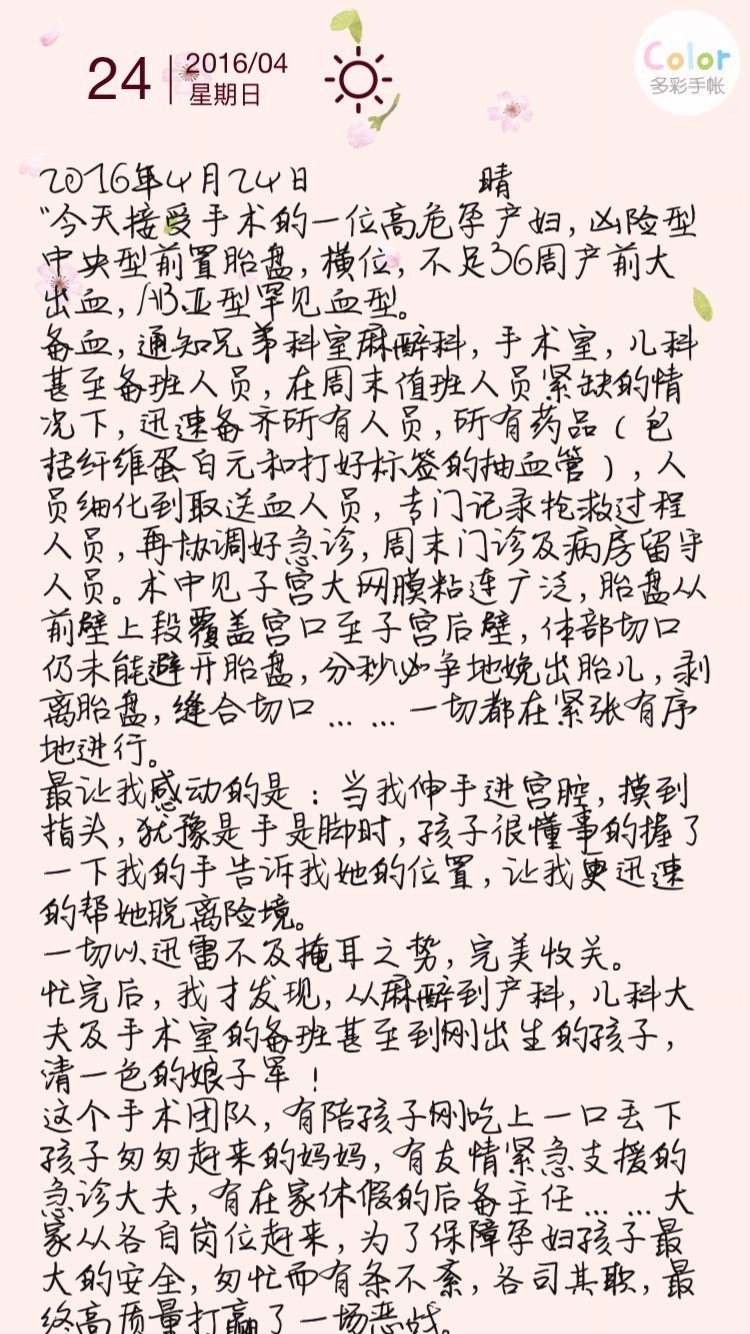 24
2016/04
星期日
Color
多彩手帐
2016年4月24日 晴
“今天接受手术的一位高危孕产妇，凶险型
中央型前置胎盘，横位，不足36周产前大
出血，AB亚型罕见血型。
备血，通知兄弟科室麻醉科，手术室，儿科
甚至备班人员，在周末值班人员紧缺的情
况下，迅速备齐所有人员，所有药品（包
括纤维蛋白元和打好标签的抽血管），人
员细化到取送血人员，专门记录抢救过程
人员，再协调好急诊，周末门诊及病房留守
人员。术中见子宫大网膜粘连广泛，胎盘从
前壁上段覆盖宫口至子宫后壁，体部切口
仍未能避开胎盘，分秒必争地娩出胎儿，剥
离胎盘，缝合切口……一切都在紧张有序
地进行。
最让我感动的是：当我伸手进宫腔，摸到
指头，犹豫是手是脚时，孩子很懂事的握了
一下我的手告诉我她的位置，让我更迅速
的帮她脱离险境。
一切以迅雷不及掩耳之势，完美收关。
忙完后，我才发现，从麻醉到产科，儿科大
夫及手术室的备班甚至到刚出生的孩子，
清一色的娘子军！
这个手术团队，有陪孩子刚吃上一口丢下
孩子匆匆赶来的妈妈，有友情紧急支援的
急诊大夫，有在家休假的后备主任……大
家从各自岗位赶来，为了保障孕妇孩子最
大的安全，匆忙而有条不紊，各司其职，最
终高质量打赢了一场恶战。